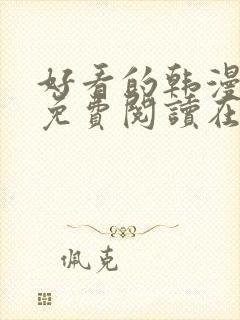 好看的韩漫
免費閱讀在
佩克